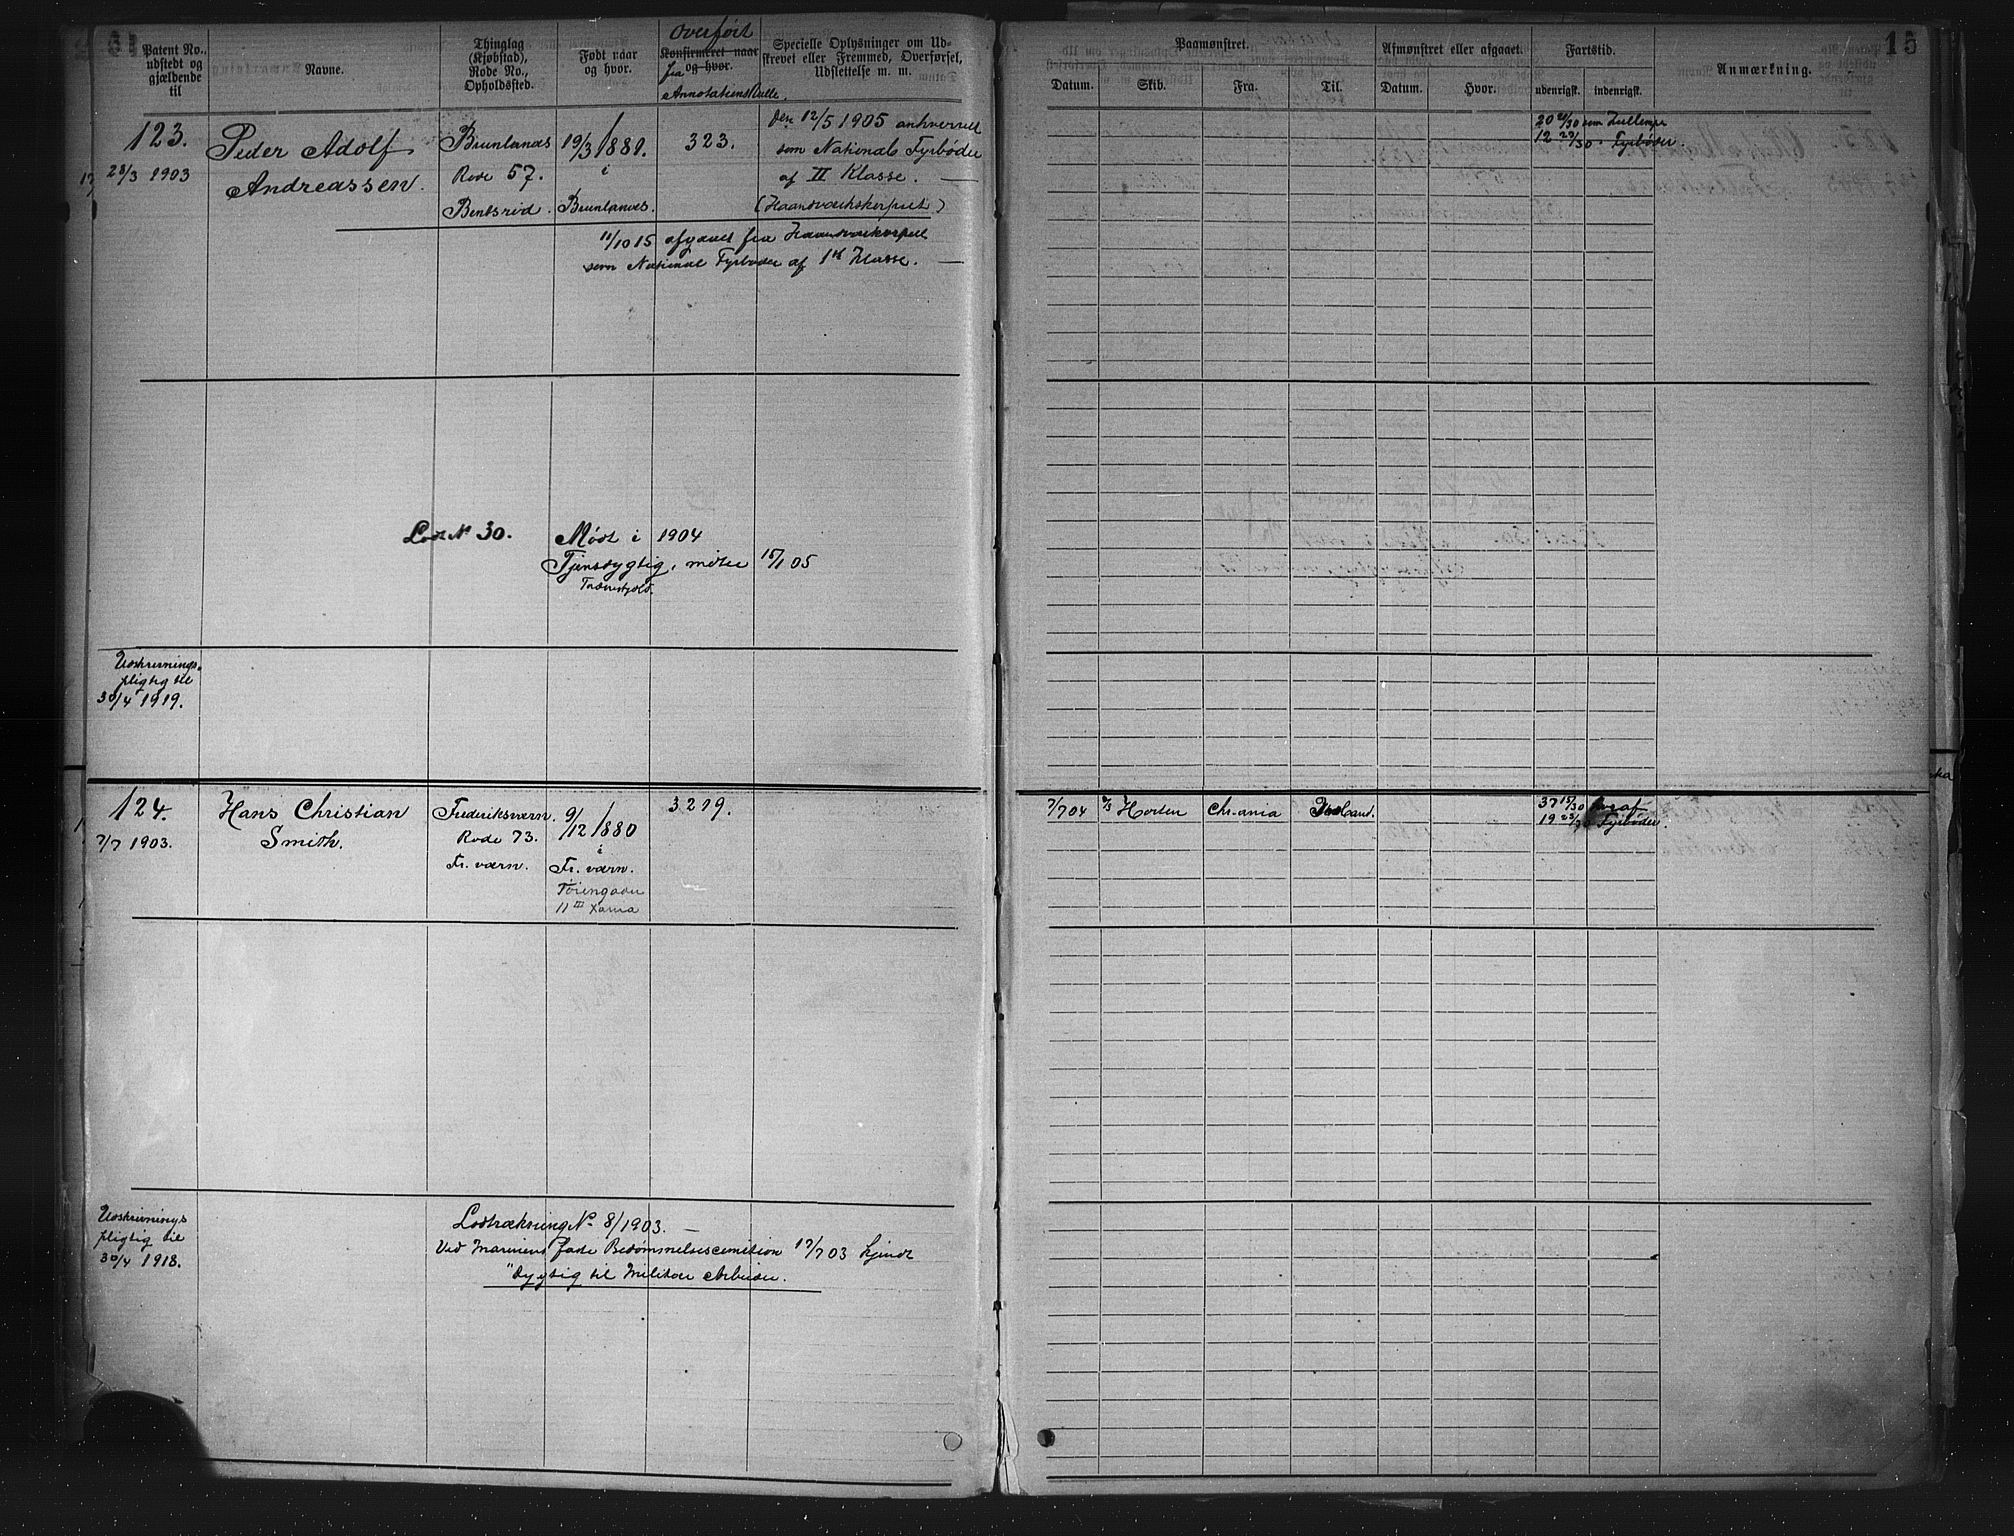 15
Patent No.,
udstedt og
gjældende
til
Navne.
Thinglag
(Kjøbstad),
Rode No.,
Opholdsted.
Født naar
og hvor.
Overført
Konfirmeret naar
og hvor.
fra
Annotationsrulle.
Specielle Oplysninger om Ud-
skrevet eller Fremmed, Overførsel,
Udslettelse m. m.
Paamønstret.
Datum.
Skib.
Fra.
Til.
Afmønstret eller afgaaet.
Datum.
Hvor.
Fartstid.
udenrigsk.
indenrigsk.
Anmærkning.
123.
28/3 1903
Peder Adolf
Andreassen.
Brunlanes
Rode 57.
Bentsrød.
19/3 1881.
i
Brunlanes.
323.
Den 12/5 1905
som National Fyrbøder
af II Klasse.
(Haandværkskorpset)
11/10 15 afgaaet fra
som National Fyrbøder af 1ste Klasse.
20 21/30 som Lullempe
12 23/30 " Fyrbøder.
Lod № 30.
Mødt i 1904
Tjenstdygtig, møter 15/1 05
Tordenskjold.
Udskrivnings-
pligtig til
30/4 1919.
124.
7/7 1903.
Hans Christian
Smith.
Frederiksværn.
Rode 73.
Fr. værn.
9/12 1880
i
Fr. værn.
Tøiengaden
11 III Xania
3219.
7/7 04
Horten
Chr.ania
37 17/30
19 23/30 Fyrbøder.
Udskrivnings
pligtig til
30/4 1918.
Lodtrækning № 8/1903.
Ved Marinens faste Bedømmelsescomition 17/7 03 kjendt
"Dygtig til Militær Arbeider.